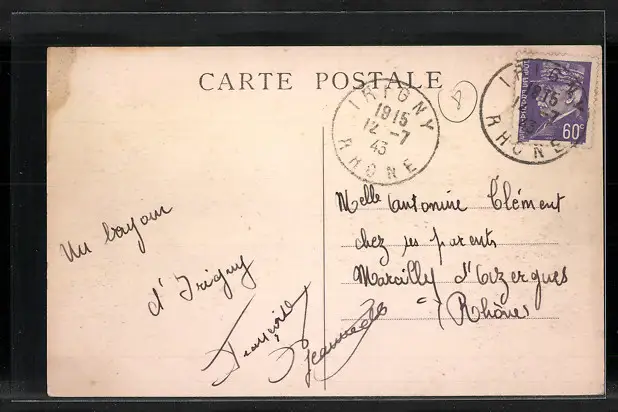 CARTE POSTALE
IRIGNY
1815
12-7
43
RHÔNE
IRIGNY
1815
RHÔNE
60c
Un bonjour
d'Irigny
Melle Antonine Clément
chez ses parents
Marcilly d'Azergues
(Rhône)